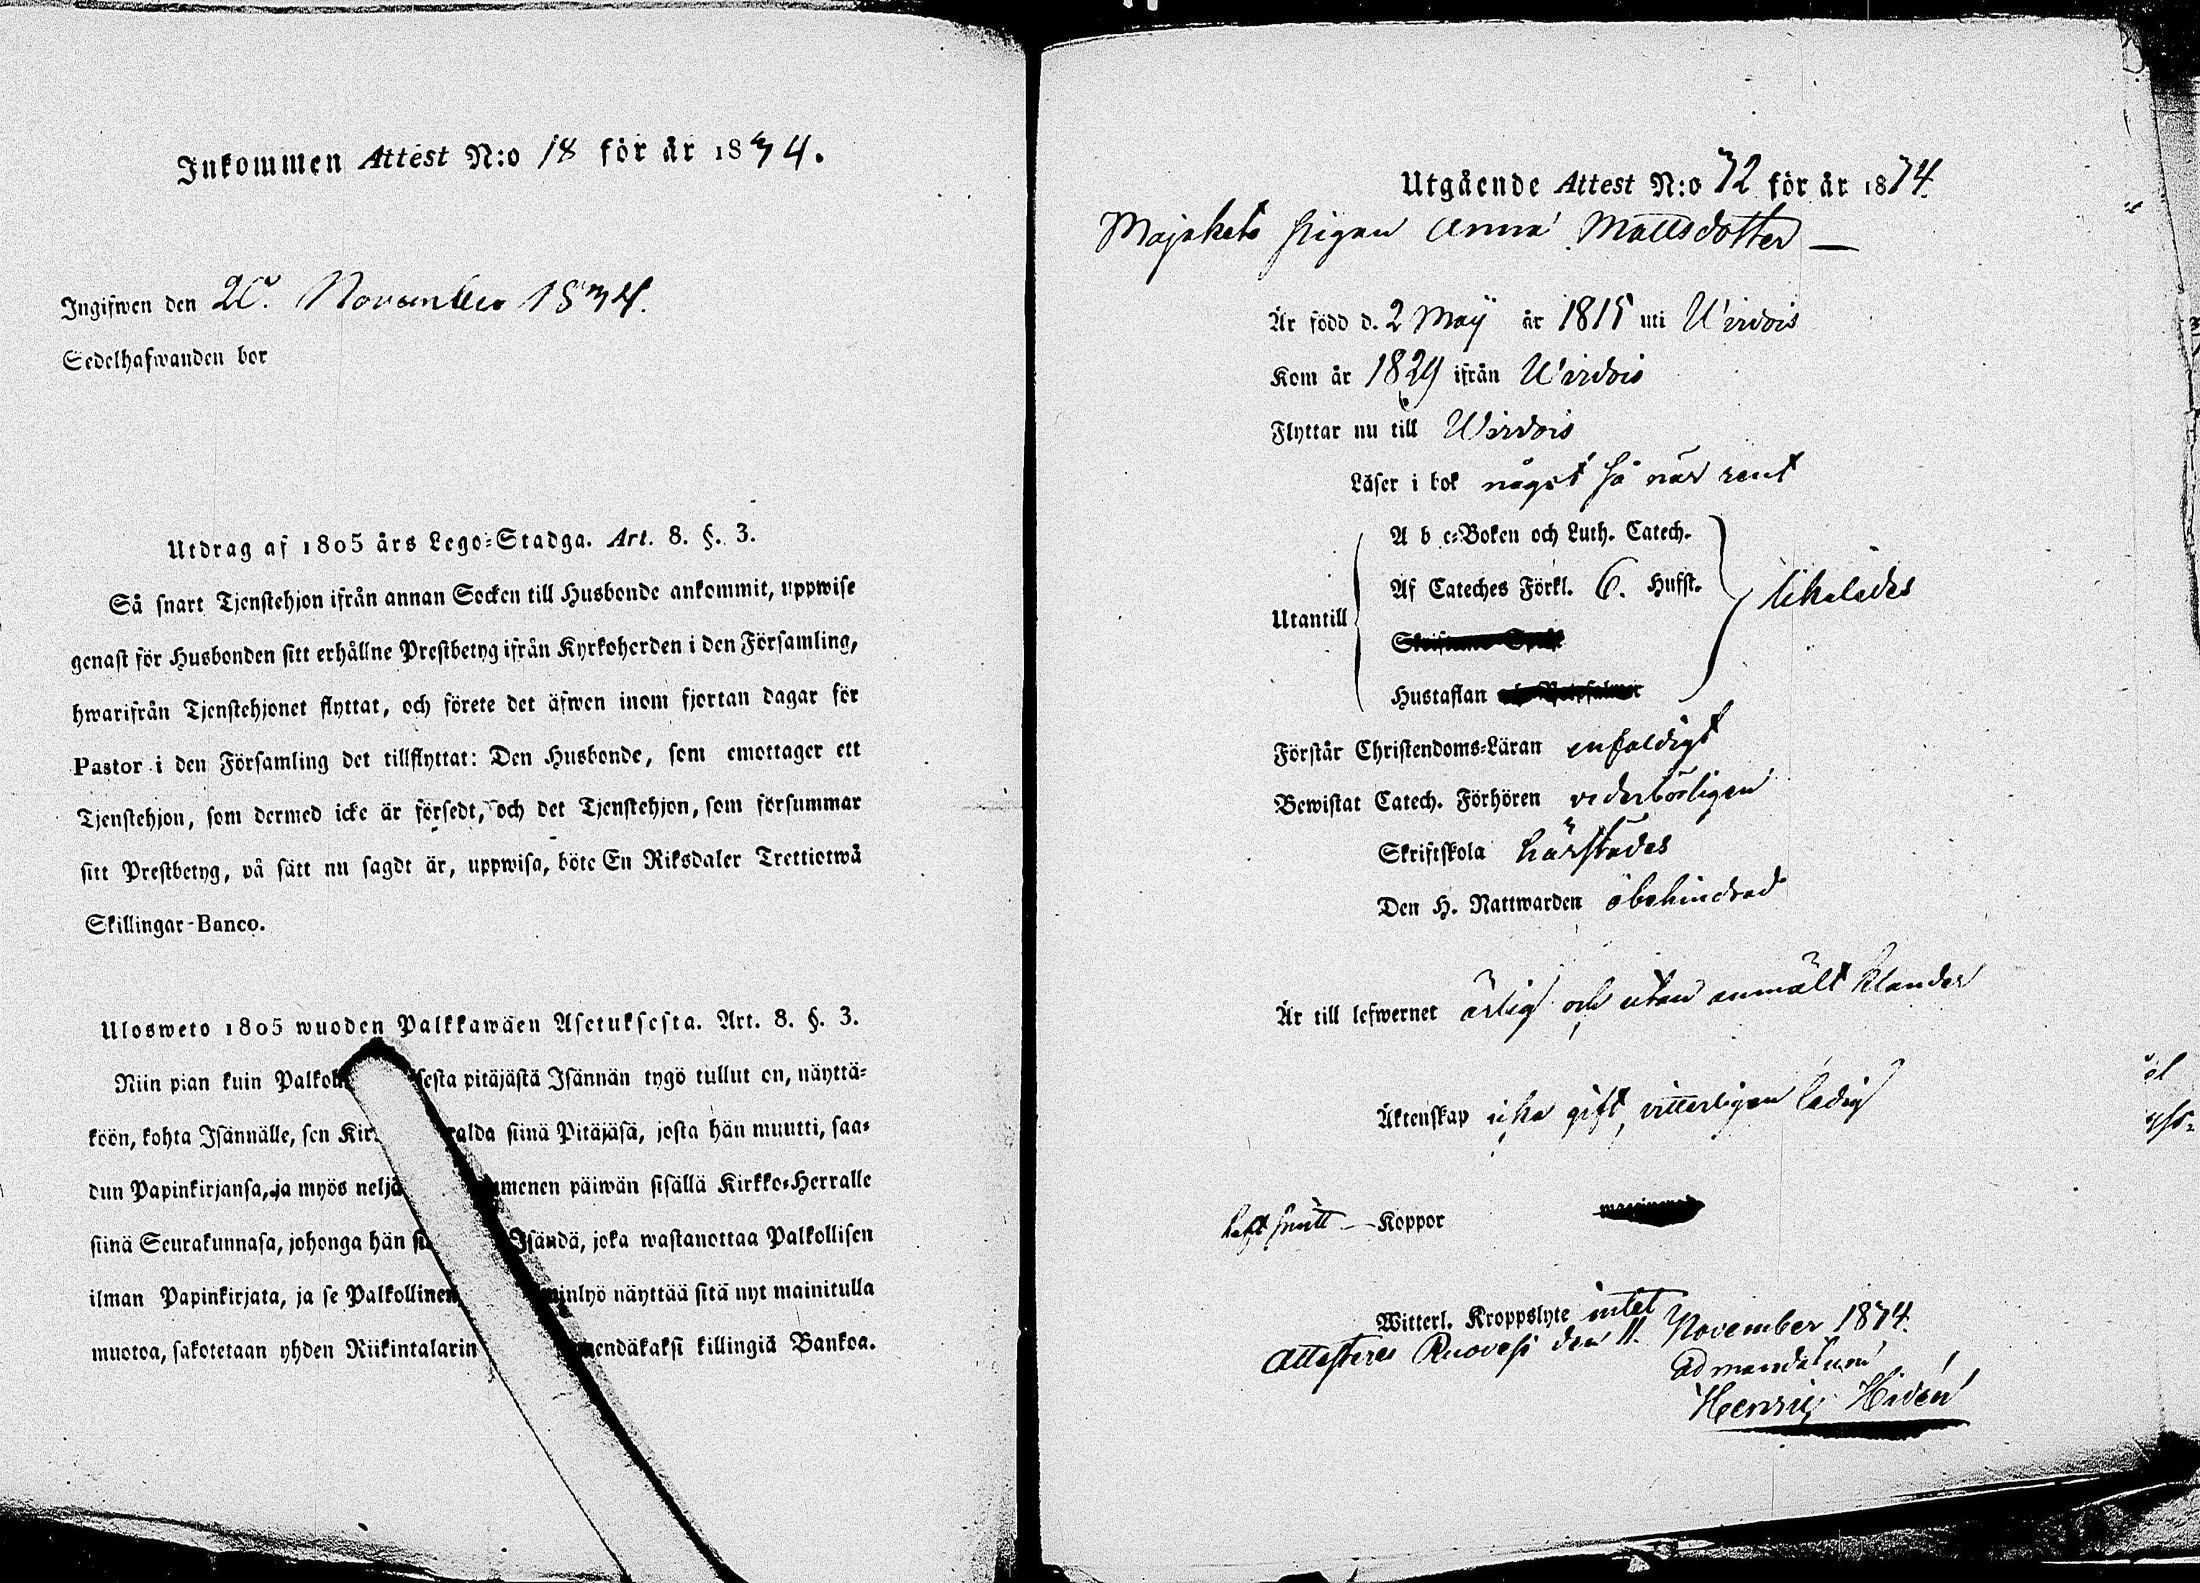 Inkommen Attest N:o 18 för år 1834.
Ingifwen den 20. November 1834.
Sedelhafwanden bor
Utdrag af 1805 års Lego-Stadga. Art. 8. §. 3.
Så snart Tjenstehjon ifrån annan Socken till Husbonde ankommit, uppwise
genast för Husbonden sitt erhållne Prestbetyg ifrån Kyrkoherden i den Församling,
hwarifrån Tjenstehjonet flyttat, och förete det äfwen inom fjortan dagar för
Pastor i den Församling det tillflyttat: Den Husbonde, som emottager ett
Tjenstehjon, som dermed icke är försedt, och det Tjenstehjon, som försummar
sitt Prestbetyg, på sätt nu sagdt är, uppwisa, böte En Riksdaler Trettiotwå
Skillingar-Banco.
Ulosweto 1805 wuoden Palkkawäen Asetuksesta. Art. 8. §. 3.
Niin pian kuin pitäjästä Isännän tygö tullut on, näyttä-
köön, kohta Isännälle, sen siinä Pitäjäsä, josta hän muutti, saa-
dun Papinkirjansa, ja myös päiwän sisällä Kirkko-Herralle
siinä Seurakunnasa, johonga hän Isändä, joka wastanottaa Palkollisen
ilman Papinkirjata, ja se Palkollinen, näyttää sitä nyt mainitulla
muotoa, sakotetaan yhden Riikintalarin killingiä Bankoa.
Utgående Attest N:o 72 för år 1834.
Majakets pigan Anna Mattsdotter —
Är född d. 2 Maÿ år 1815 uti Wirdois
Kom år 1829 ifrån Wirdois
Flyttar nu till Wirdois
Läser i bok något så när rent
A b c-Boken och Luth. Catech.
Af Cateches Förkl. 6. Hufst.
Utantill likaledes
Hustaflan
Förstår Christendoms-Läran enfaldigt
Bewistat Catech. Förhören vederbörligen
Skriftskola härstädes
Den H. Nattwarden obehindrad
Är till lefwernet ärlig och utan anmält klander
Äktenskap icke gift, vitterligen ledig
haft Koppor
Witterl. Kroppslyte intet
Attesteras Ruovesi den 11. November 1834.
ad mandatum
Henric Hidén